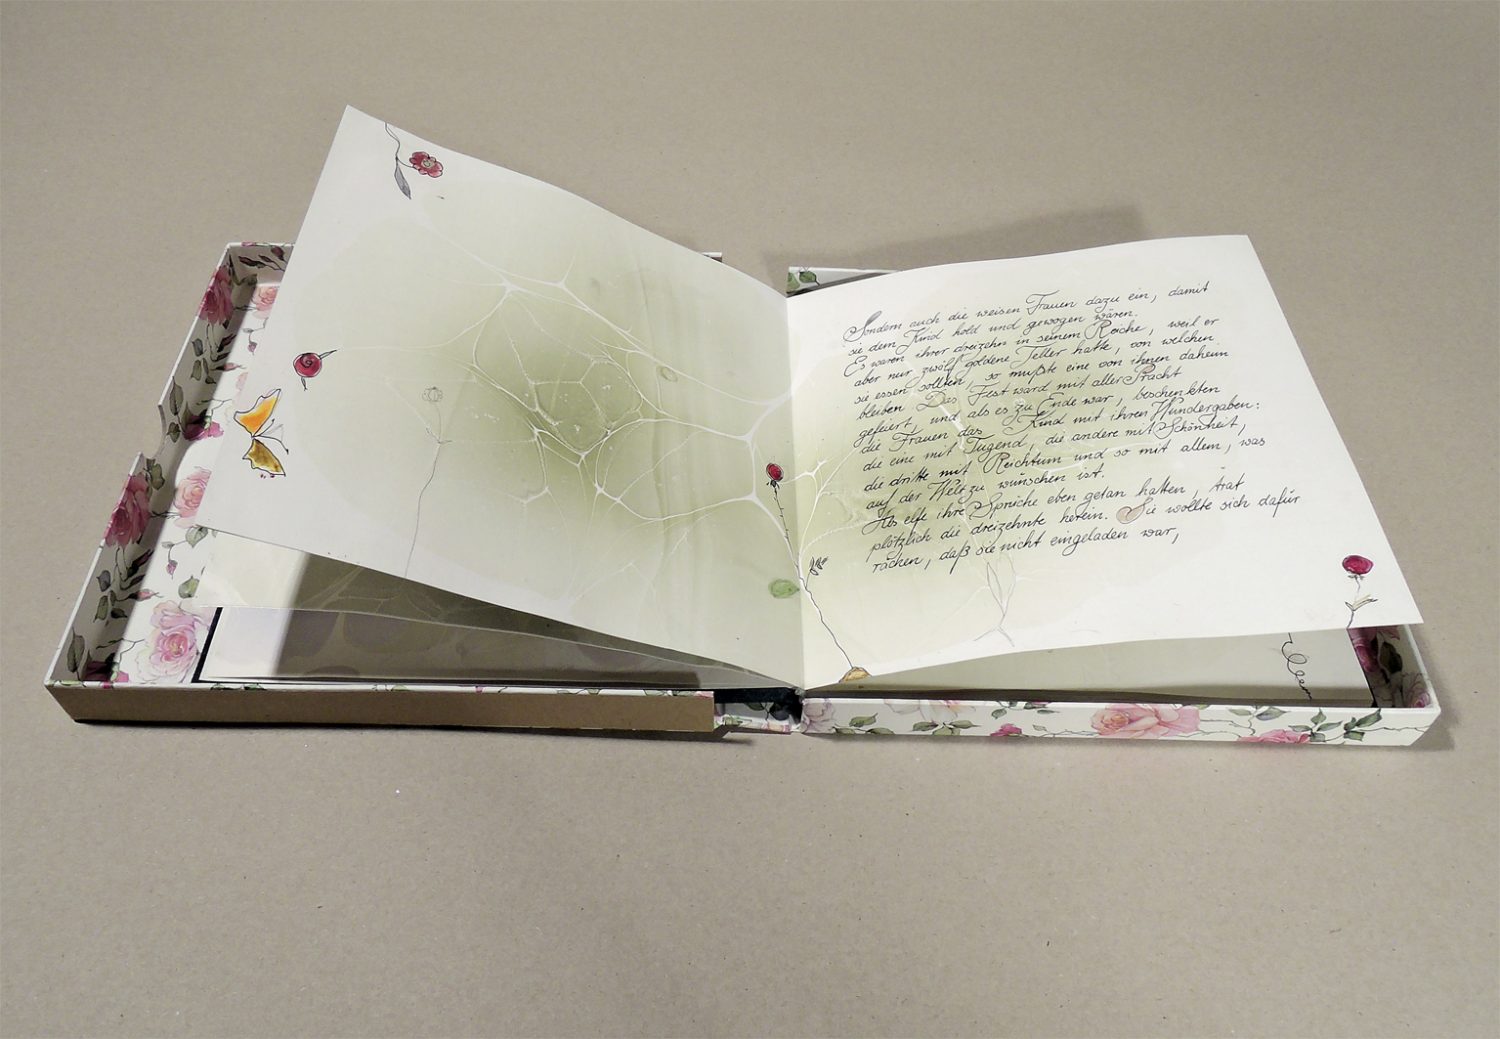 Sondern auch die weisen Frauen dazu ein, damit
sie dem Kind hold und gewogen wären.
Es waren ihrer dreizehn in seinem Reiche, weil er
aber nur zwölf goldene Teller hatte, von welchen
sie essen sollten, so mußte eine von ihnen daheim
bleiben. Das Fest ward mit aller Pracht
gefeiert, und als es zu Ende war, beschenkten
die Frauen das Kind mit ihren Wundergaben:
die eine mit Tugend, die andere mit Schönheit,
die dritte mit Reichtum und so mit allem, was
auf der Welt zu wünschen ist.
Als elfe ihre Sprüche eben getan hatten, trat
plötzlich die dreizehnte herein. Sie wollte sich dafür
rächen, daß sie nicht eingeladen war,